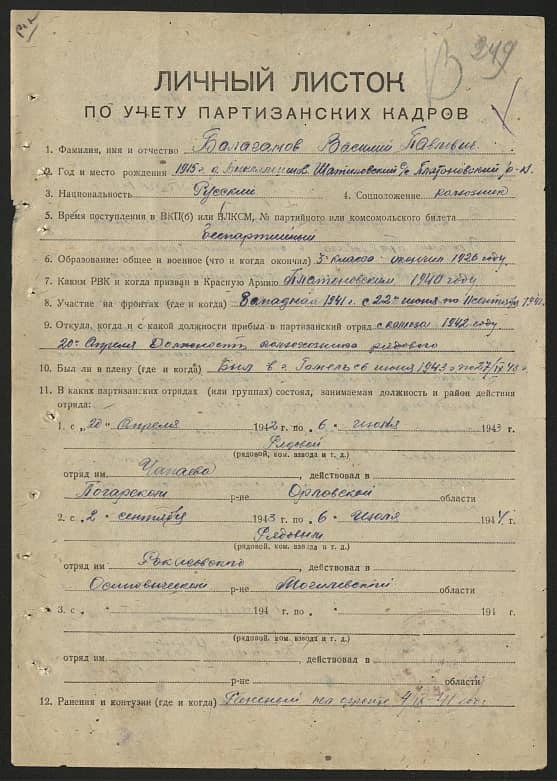 249
ЛИЧНЫЙ ЛИСТОК
ПО УЧЕТУ ПАРТИЗАНСКИХ КАДРОВ
1. Фамилия, имя и отчество Балаганов Василий Павлович
2. Год и место рождения 1915 г. Шатиловский с/с Платоновский р-н.
3. Национальность Русский 4. Соцположение колхозник
5. Время поступления в ВКП(б) или ВЛКСМ, № партийного или комсомольского билета
Беспартийный
6. Образование: общее и военное (что и когда окончил) 3 класса окончил 1926 году
7. Каким РВК и когда призван в Красную Армию Платоновским 1940 году
8. Участие на фронтах (где и когда) Западная 1941 г. с 22 июня по сентябрь 1941
9. Откуда, когда и с какой должности прибыл в партизанский отряд 1942 году
20 Апреля Должность колхозника рядового
10. Был ли в плену (где и когда) Был в г. Гомель с 6 июня 1943
11. В каких партизанских отрядах (или группах) состоял, занимаемая должность и район действия
отряда:
1. с „20" Апреля 1942 г. по „6 " июня 1943 г.
Рядовой
(рядовой, ком. взвода и т. д.)
отряд им. Чапаева действовал в
Погарском р-не Орловской области
2. с „2 " сентября 1943 г. по „6 " Июля 1944 г.
Рядовым
(рядовой, ком. взвода и т. д.)
отряд им. действовал в
Осиповическом р-не Могилевской области
3. с „ " 194 г. по „ " 194 г.
(рядовой, ком. взвода и т. д.)
отряд им. действовал в
р-не области
12. Ранения и контузии (где и когда) Раненый на фронте 4/IX-41 год.